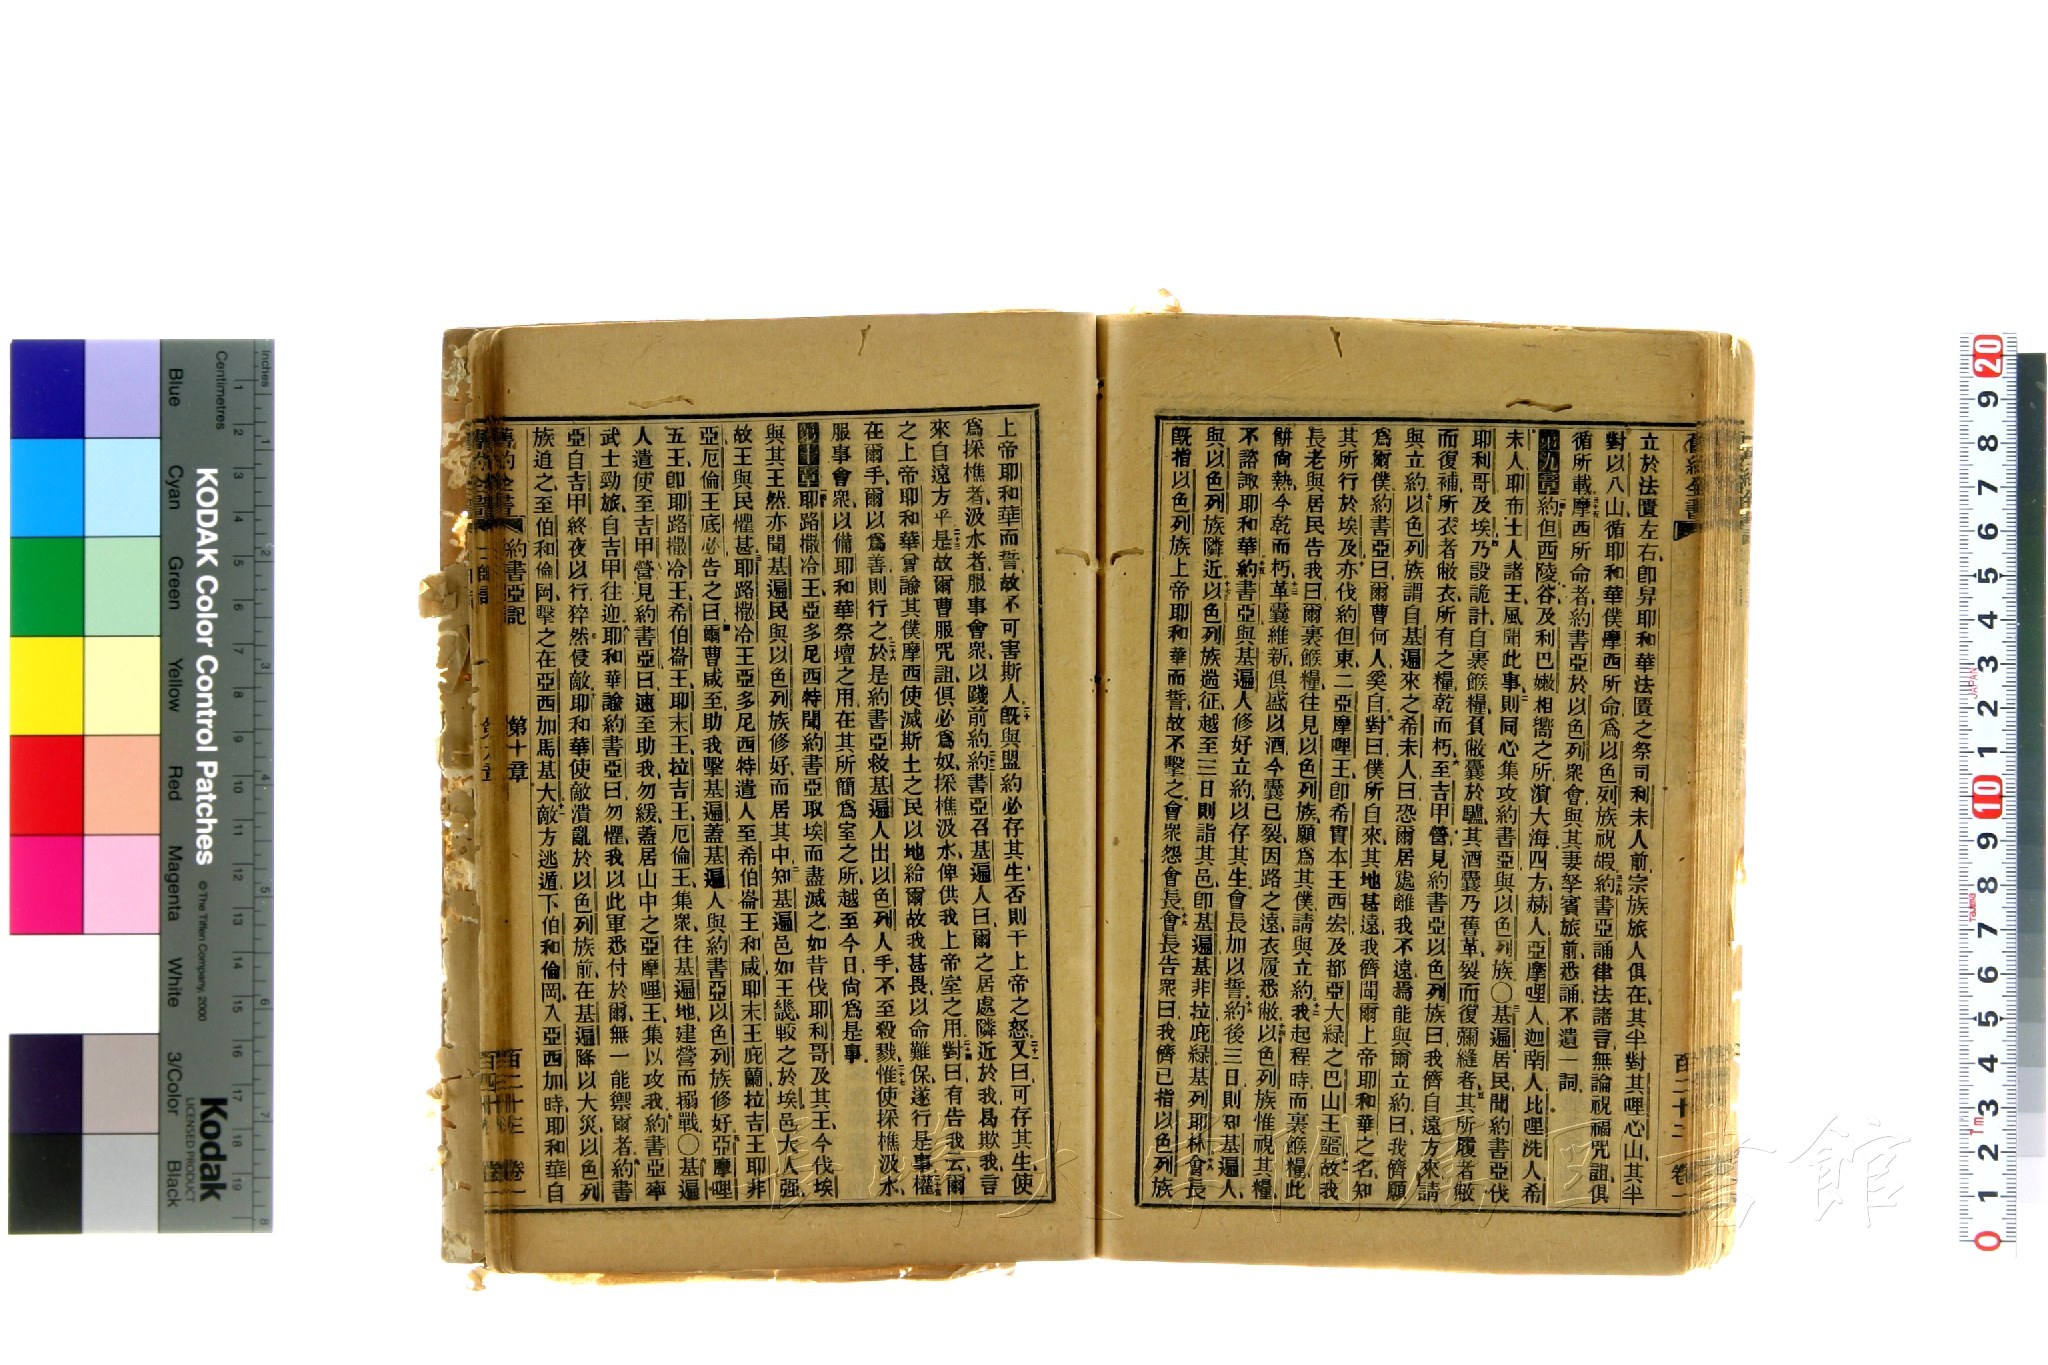 立於法匱左右、卽舁耶和華法匱之祭司利未人前、宗族旅人俱在、其半對其哩心山、其半
對以八山、循耶和華僕摩西所命、爲以色列族祝嘏、約書亞誦律法諸言、無論祝福咒詛、俱
循所載、摩西所命者、約書亞於以色列衆會、與其妻孥賓旅前、悉誦不遺一詞、
第九章 約但西、陵谷及利巴嫩相嚮之所、濱大海四方、赫人亞摩哩人迦南人比哩洗人希
未人耶布士人諸王、風聞此事、則同心集、攻約書亞與以色列族、〇基遍居民聞約書亞伐
耶利哥及埃、乃設詭計、自裹餱糧、負敝囊於驢、其酒囊乃舊革、裂而復彌縫者、其所履者敝
而復補、所衣者敝衣、所有之糧、乾而朽、至吉甲營、見約書亞以色列族曰、我儕自遠方來、請
與立約、以色列族謂自基遍來之希未人曰、恐爾居處離我不遠、焉能與爾立約、曰我儕願
爲爾僕、約書亞曰、爾曹何人、奚自、對曰、僕所自來、其地甚遠、我儕聞爾上帝耶和華之名、知
其所行於埃及、亦伐約但東、二亞摩哩王、卽希實本王西宏、及都亞大綠之巴山王噩、故我
長老與居民告我曰、爾裹餱糧、往見以色列族、願爲其僕、請與立約、我起程時、而裹餱糧、此
餅尙熱、今乾而朽、革囊維新、俱盛以酒、今囊已裂、因路之遠、衣履悉敝、以色列族惟視其糧、
不諮諏耶和華、約書亞與基遍人修好立約、以存其生、會長加以誓、約後三日、則知基遍人
與以色列族隣近、以色列族遄征、越至三日、則詣其邑、卽基遍基非拉庇綠基列耶林、會長
旣指以色列族上帝耶和華而誓、故不擊之、會衆怨會長、會長告衆曰、我儕已指以色列族
上帝耶和華而誓、故不可害斯人、旣與盟約、必存其生、否則干上帝之怒、又曰可存其生、使
爲採樵者、汲水者、服事會衆、以踐前約、約書亞召基遍人曰、爾之居處、隣近於我、曷欺我、言
來自遠方乎、是故爾曹服咒詛、俱必爲奴、採樵汲水、俾供我上帝室之用、對曰、有告我云、爾
之上帝耶和華、曾諭其僕摩西、使滅斯土之民、以地給爾、故我甚畏、以命難保、遂行是事、權
在爾手、爾以爲善則行之、於是約書亞救基遍人、出以色列人手、不至殺戮、惟使採樵汲水、
服事會衆、以備耶和華祭壇之用、在其所簡爲室之所、越至今日、尙爲是事、
第十章 耶路撒冷王亞多尼西特聞約書亞取埃、而盡滅之、如昔伐耶利哥及其王、今伐埃
與其王、然亦聞基遍民與以色列族修好、而居其中、知基遍邑如王畿、較之於埃、邑大人强、
故王與民懼甚、耶路撒冷王亞多尼西特遣人至希伯崙王和咸、耶末王庇蘭、拉吉王耶非
亞、厄倫王底必、告之曰、爾曹咸至助我、擊基遍、蓋基遍人與約書亞以色列族修好、亞摩哩
五王、卽耶路撒冷王、希伯崙王、耶末王、拉吉王、厄倫王、集衆往基遍地、建營而搦戰、〇基遍
人遣使至吉甲營、見約書亞曰、速至助我、勿緩、蓋居山中之亞摩哩王集以攻我、約書亞率
武士勁旅、自吉甲往迎、耶和華諭約書亞曰、勿懼、我以此軍悉付於爾、無一能禦爾者、約書
亞自吉甲終夜以行、猝然侵敵、耶和華使敵潰亂於以色列族前、在基遍降以大災、以色列
族追之、至伯和倫岡、擊之在亞西加馬基大、敵方逃遁、下伯和倫岡、入亞西加時、耶和華自
舊約全書 約書亞記 第十章 百二十三 卷一